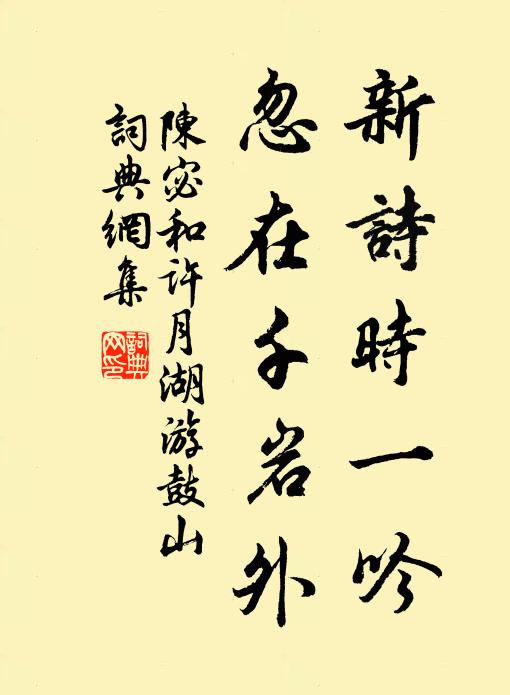 新詩時一吟
忽在千岩外
陳宓和许月湖游鼓山
詞典網集
詞典
网印